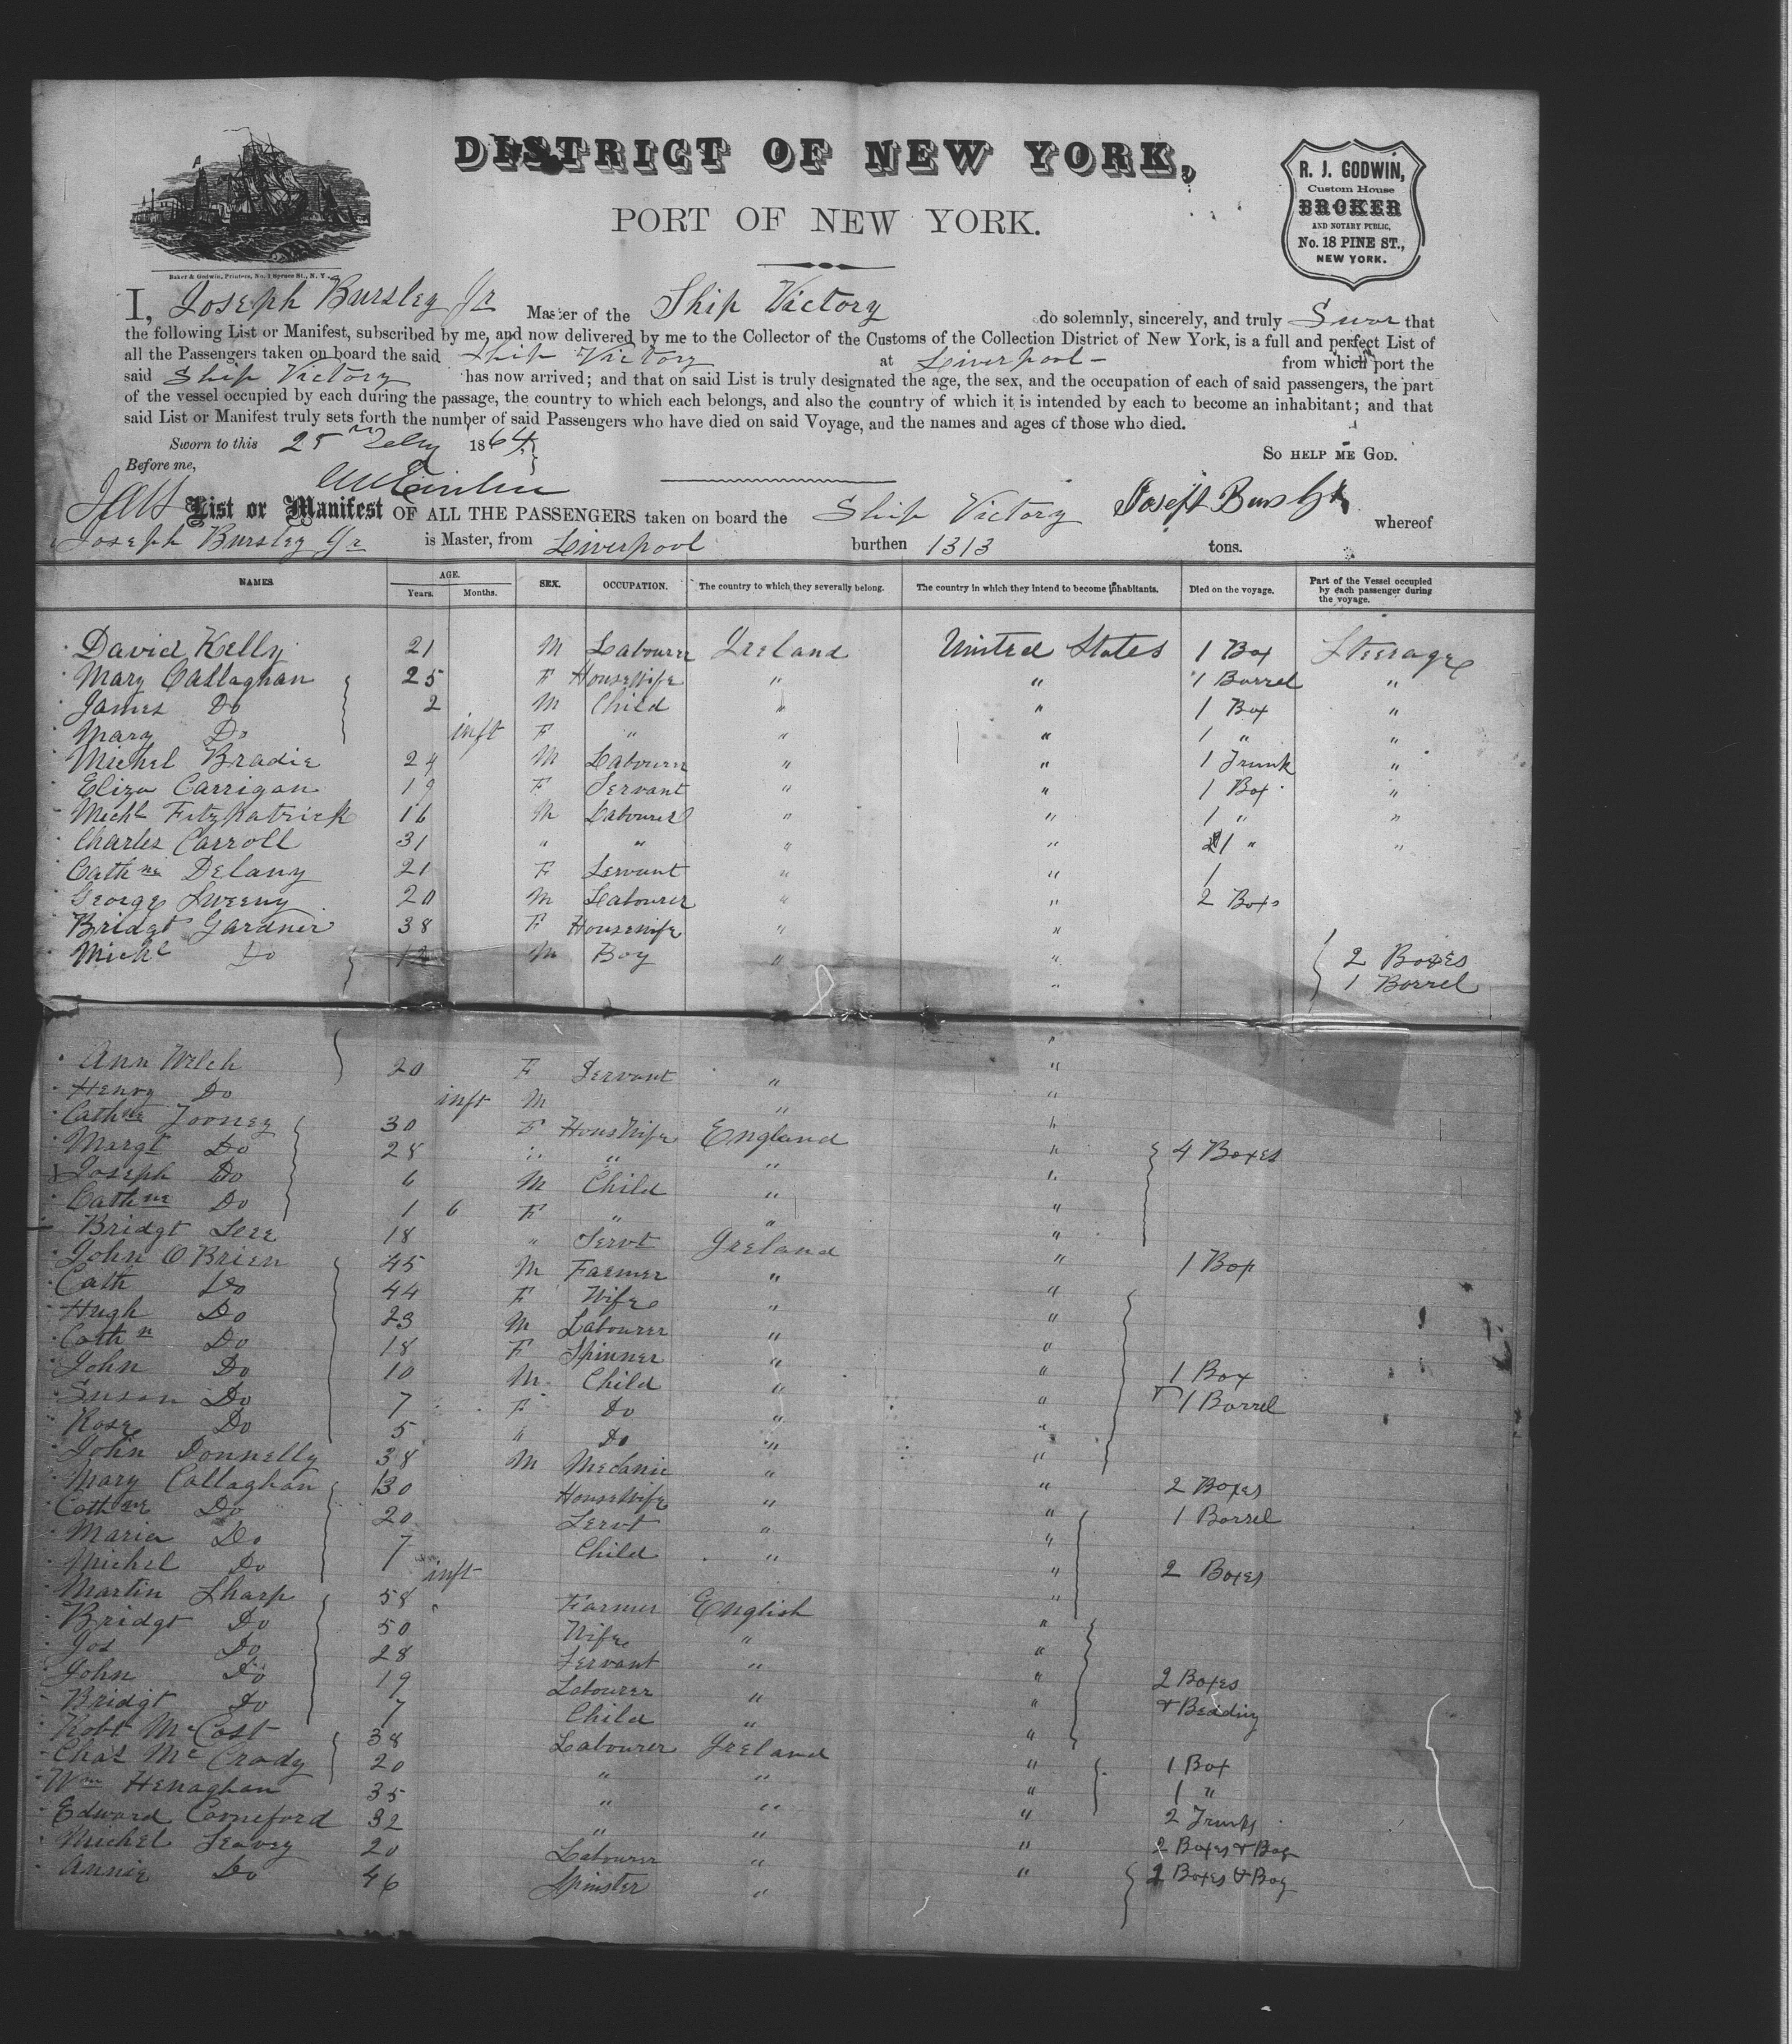 DISTRICT OF NEW YORK,
PORT OF NEW YORK.
R. J. GODWIN,
Custom House
BROKER
AND NOTARY PUBLIC,
No. 18 PINE ST.,
NEW YORK.
Baker & Godwin, Printers, No. 1 Spruce St., N. Y.
I, Joseph Bursley Jr Master of the Ship Victory do solemnly, sincerely, and truly Swear that
the following List or Manifest, subscribed by me, and now delivered by me to the Collector of the Customs of the Collection District of New York, is a full and perfect List of
all the Passengers taken on board the said Ship Victory at Liverpool - from which port the
said Ship Victory has now arrived; and that on said List is truly designated the age, the sex, and the occupation of each of said passengers, the part
of the vessel occupied by each during the passage, the country to which each belongs, and also the country of which it is intended by each to become an inhabitant; and that
said List or Manifest truly sets forth the number of said Passengers who have died on said Voyage, and the names and ages of those who died.
Sworn to this 25 Feby 1864 So HELP ME GOD.
Before me,
List or Manifest OF ALL THE PASSENGERS taken on board the Ship Victory Joseph Bursley Jr whereof
Joseph Bursley Jr is Master, from Liverpool burthen 1313 tons.
NAMES AGE. SEX. OCCUPATION. The country to which they severally belong. The country in which they intend to become inhabitants. Died on the voyage. Part of the Vessel occupied by each passenger during the voyage.
Years. Months.
David Kelly 21 M Labourer Ireland United States 1 Box Steerage
Mary Callaghan 25 F Housewife " " 1 Barrel "
James Do 2 M Child " " 1 Box "
Mary Do inft F " " " 1 " "
Michel Bradie 24 M Labourer " " 1 Trunk "
Eliza Carrigan 19 F Servant " " 1 Box "
Michl Fitzpatrick 16 M Labourer " " 1 " "
Charles Carroll 31 " " " " 1 " "
Cathne Delany 21 F Servant " " 1
George Sweeny 20 M Labourer " " 2 Boxs
Bridgt Gardner 38 F Housewife " "
Michl Do 12 M Boy " " 2 Boxes
" 1 Barrel
"
Ann Welch 20 F Servant " "
Henry Do inft M " "
Cathne Tooney 30 F Houswife England "
Margt Do 28 " " " " 4 Boxes
Joseph Do 6 M Child " "
Cathne Do 1 6 F " " "
Bridgt Leee 18 " Servt Ireland "
John O Brien 45 M Farmer " " 1 Box
Cath Do 44 F Wife " "
Hugh Do 23 M Labourer " "
Cathn Do 18 F Spinner " "
John Do 10 M Child " " 1 Box
Susan Do 7 F Do " " 1 Barrel
Rose Do 5 " Do " "
John Donnelly 38 M Mecanic " "
Mary Callaghan 30 Housewife " " 2 Boxes
Cathne Do 20 Servt " " 1 Barrel
Maria Do 7 Child " "
Michel Do inft " 2 Boxes
Martin Sharp 58 Farmer English "
Bridgt Do 50 Wife " "
Jos Do 28 Servant " "
John Do 19 Labourer " " 2 Boxes
Bridgt Do 7 Child " " & Beading
Robt McCost 38 Labourer Ireland "
Chas McCrady 20 " " " 1 Box
Wm Henaghan 35 " " " 1 "
Edward Comeford 32 " " " 2 Trunks
Michel Leavey 20 Labourer " " 2 Boxes & Bag
Annie Do 46 Spinster " " 2 Boxes & Bag